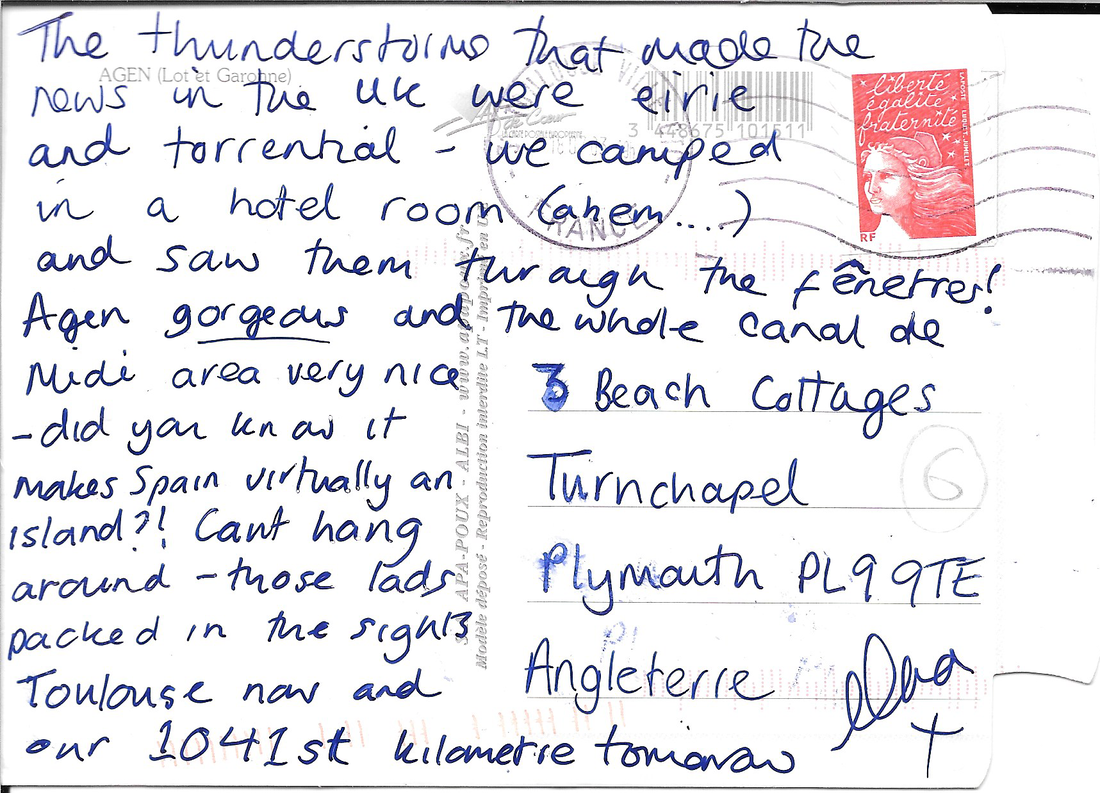 The thunderstorms that made the
AGEN (Lot et Garonne)
news in the UK were eirie
and torrential - we camped
in a hotel room (ahem....)
and saw them through the fênetres!
Agen gorgeous and the whole canal de
Midi area very nice
-did you know it
makes Spain virtually an
island?! Cant hang
around - those lads
packed in the sights
Toulouse now and
our 1041st kilometre tomorow
3 Beach Cottages
Turnchapel
Plymouth PL9 9TE
Angleterre
Dad
liberté
égalité
fraternité
RF
LA POSTE
3 448675 101511
FRANCE
APA-POUX - ALBI - www.apapoux.fr
Modèle déposé - Reproduction interdite LT - Imprimé en
6